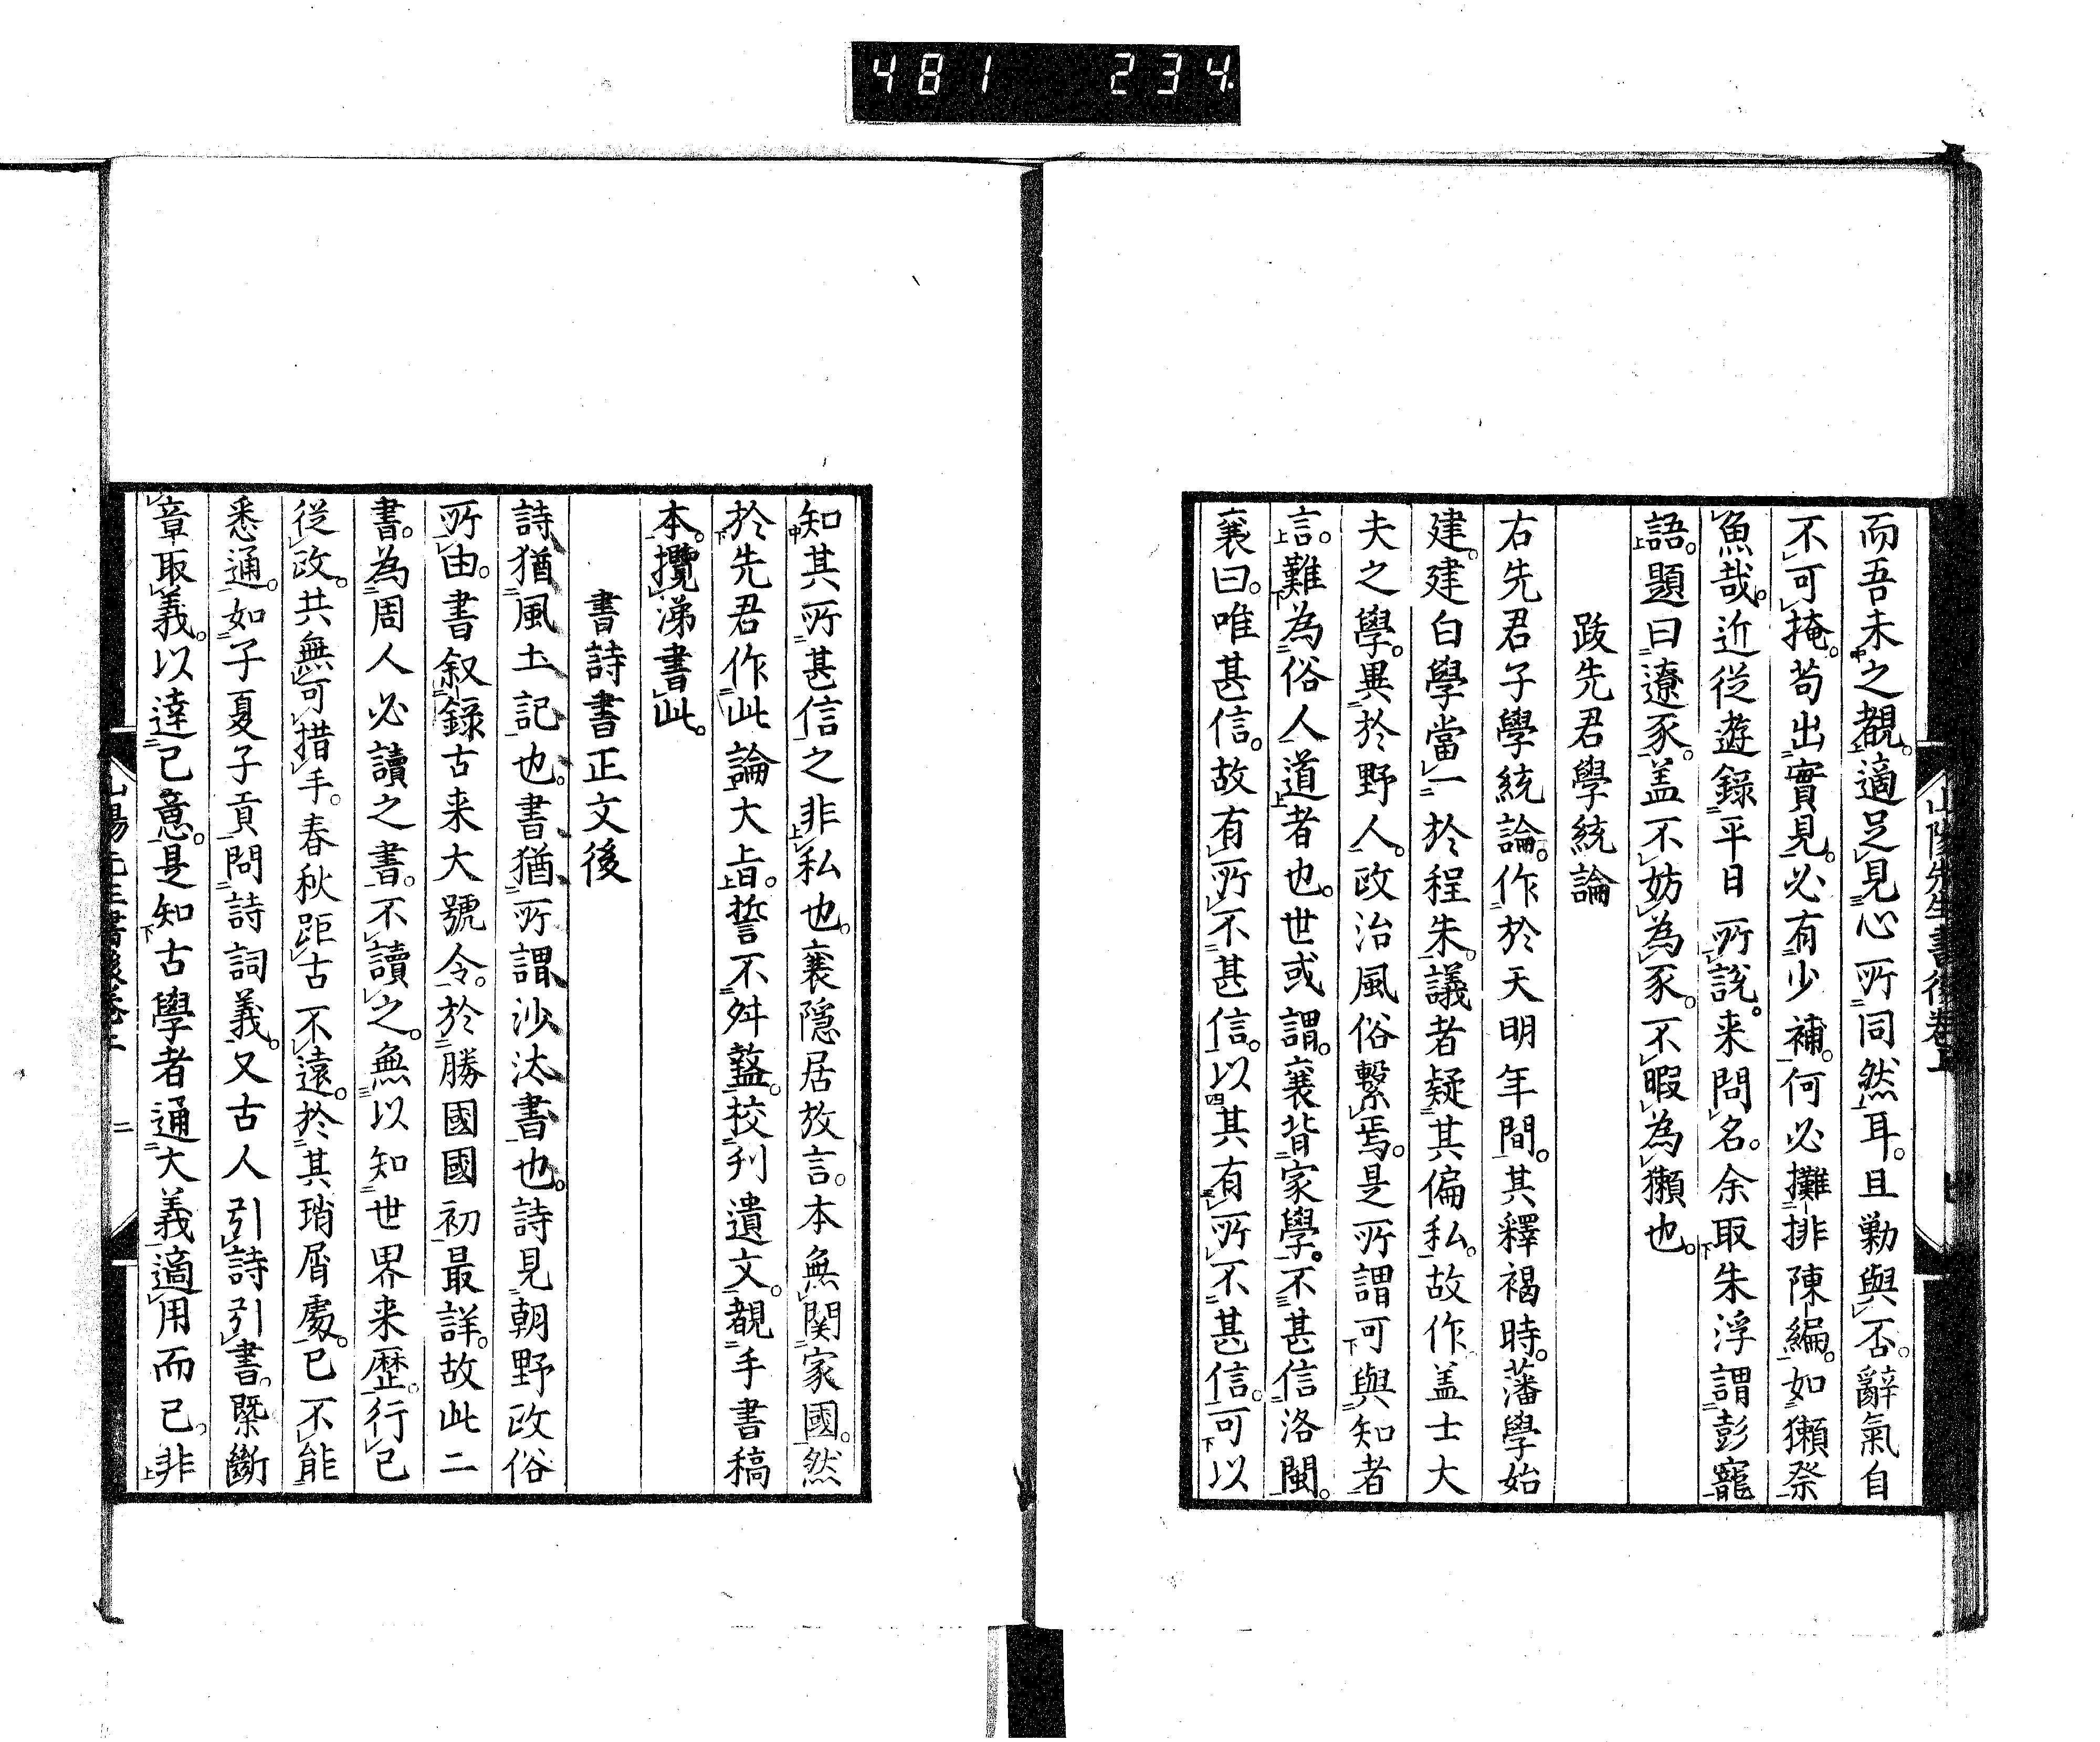 481 234
而吾未之覩。適足見心所同然耳。且勦與否。辭氣自
不可掩。苟出實見。必有少補。何必攤排陳編。如獺祭
魚哉。近從遊錄平日所說。来問名。余取朱浮謂彭寵
語。題曰遼豕。盖不妨為豕。不暇為獺也。
跋先君學統論
右先君子學統論。作於天明年間。其釋褐時。藩學始
建。建白學當一於程朱。議者疑其偏私。故作盖士大
夫之學。異於野人。政治風俗繫焉。是所謂可與知者
言。難為俗人道者也。世或謂。襄背家學。不甚信洛閩。
襄曰。唯甚信。故有所不甚信。以其有所不甚信。可以
知其所甚信之非私也。襄隱居放言。本無関家國。然
於先君作此論大旨。誓不舛盭。校刋遺文。覩手書稿
本。攬涕書此。
書詩書正文後
詩猶風土記也。書猶所謂沙汰書也。詩見朝野政俗
所由。書叙錄古来大號令。於勝國國初最詳。故此二
書。為周人必讀之書。不讀之。無以知世界来歷。行已
從政。共無可措手。春秋距古不遠。於其瑣屑處。已不能
悉通。如子夏子貢問詩詞義。又古人引詩引書。槩斷
章取義。以達己意。是知古學者通大義適用而已。非